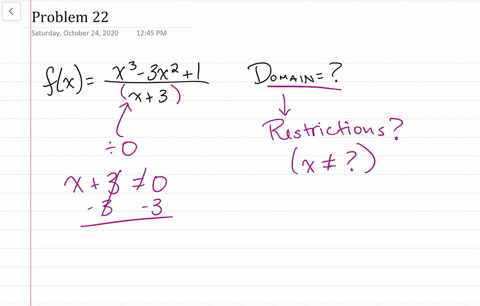 Problem 22
Saturday, October 24, 2020 12:45 PM
f(x) = x³ - 3x² + 1 / (x + 3)
÷ 0
x + 3 ≠ 0
- 3 - 3
DOMAIN = ?
Restrictions?
(x ≠ ?)